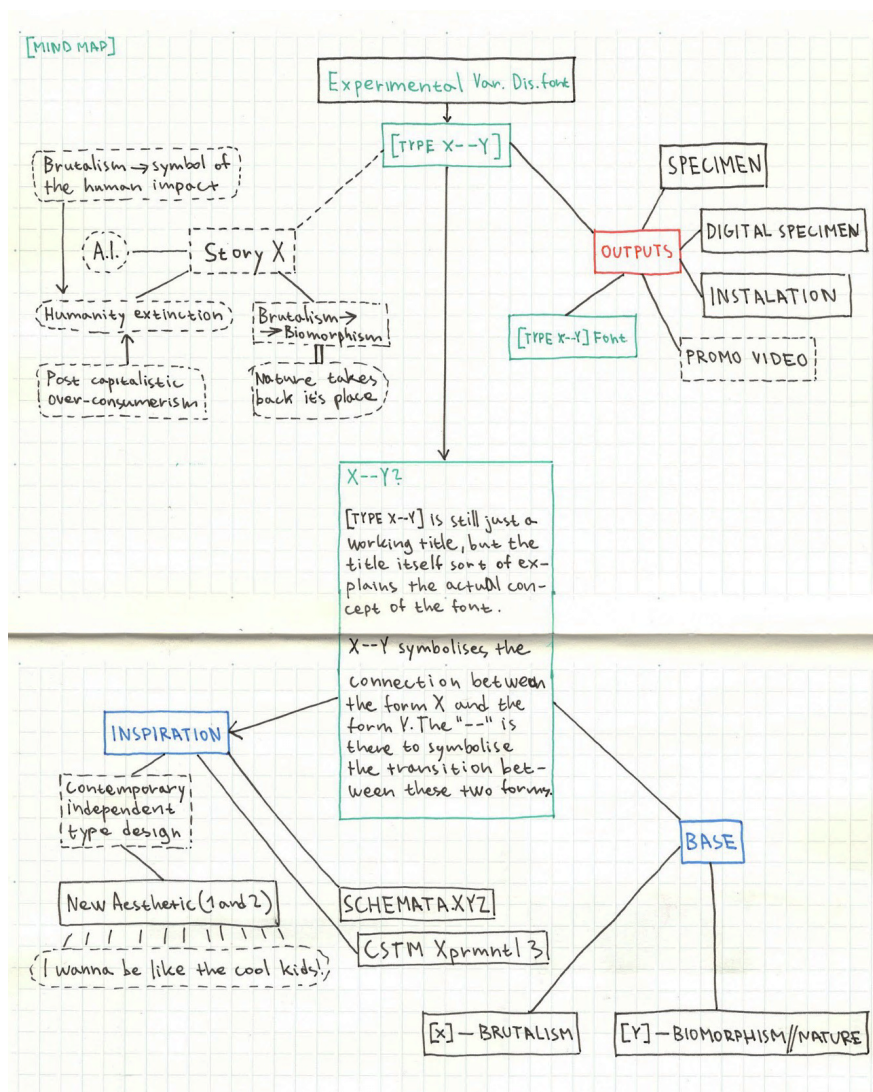 [MIND MAP]
Experimental Var. Dis. font
[TYPE X--Y]
Brutalism → symbol of
the human impact
A.I.
Story X
Humanity extinction
Brutalism →
→ Biomorphism
Post capitalistic
over-consumerism
Nature takes
back it's place
SPECIMEN
OUTPUTS
DIGITAL SPECIMEN
INSTALATION
[TYPE X--Y] Font
PROMO VIDEO
X--Y?
[TYPE X--Y] is still just a
working title, but the
title itself sort of ex-
plains the actual con-
cept of the font.
X--Y symbolises the
connection between
the form X and the
form Y. The "--" is
there to symbolise
the transition bet-
ween these two forms.
INSPIRATION
Contemporary
independent
type design
New Aesthetic (1 and 2)
I wanna be like the cool kids!
SCHEMATA.XYZ
CSTM Xprmntl 3
BASE
[X] — BRUTALISM
[Y] — BIOMORPHISM//NATURE